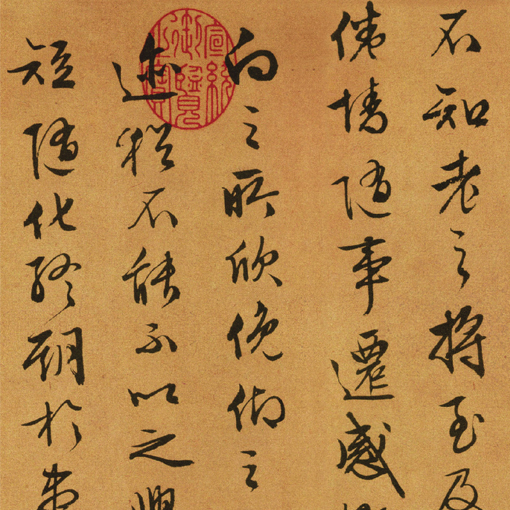 不知老之將至及
倦情隨事遷感
向之所欣俛仰之
迹猶不能不以之興
短隨化終期於盡
宣統御覽之寶